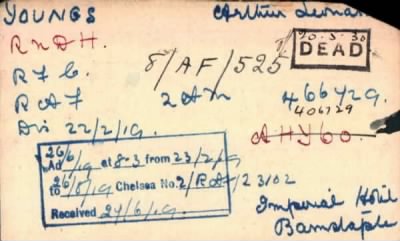 YOUNGS Arthur Leonard
R.N.D.H. 20.3.30
DEAD
8/AF/525
R.F.C.
R.A.F. 2 AM 466729.
406729
Dis 22/2/19. AHY60.
26/6/19
Ad at 8-3 from 23/2/19
to 26/8/19 Chelsea No. 2/RAF/23102
Received 24/6/19.
Imperial Hotel
Barnstaple